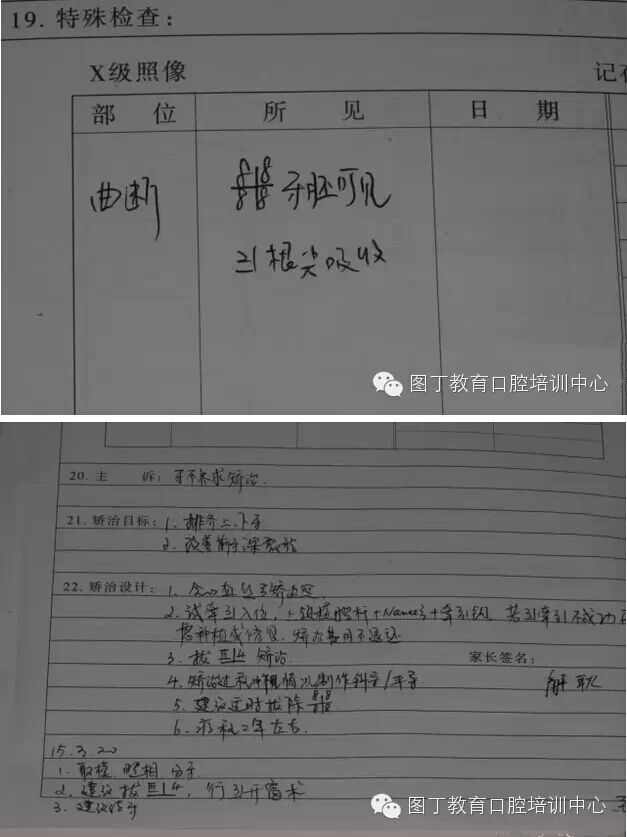 19. 特殊检查：
X级照像
部 位 所 见 日 期
曲断 8 8 牙胚可见
8 8
根尖吸收
图丁教育口腔培训中心
20. 主 诉：牙不齐求矫治.
21. 矫治目标：1. 排齐上.下牙
2. 改善前牙深覆
22. 矫治设计：1.
2. 试牵引入位, +Nance弓+牵引钩 若引牵引不成功
需种植或修复, 矫治费用不退还
3. 拔 矫治 家长签名：
4. 矫治过程中视情况制作斜导/平导
5. 建议适时拔除
6. 疗程2年左右.
15.3.20
1. 取模. 照相. 分牙
2. 建议拔 行 开窗术
3. 建议
图丁教育口腔培训中心